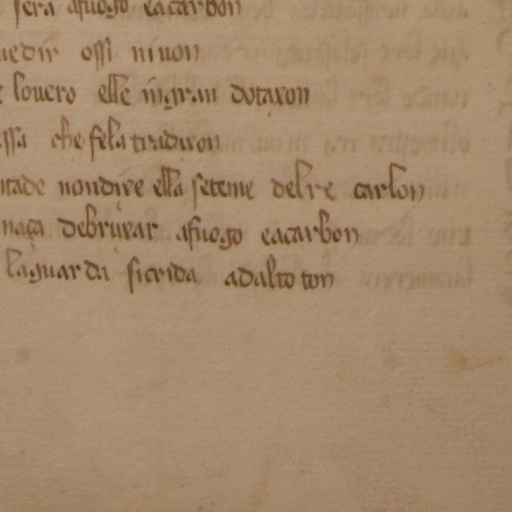 sera afuogo eacarbon
uedir ossi ni uon
lovero elle ingran dotaxon
ssa che fela tradixon
ntade nondire ella seteme del re carlon
naça debruxar afuogo eacarbon
laguarda sicrida adalto ton